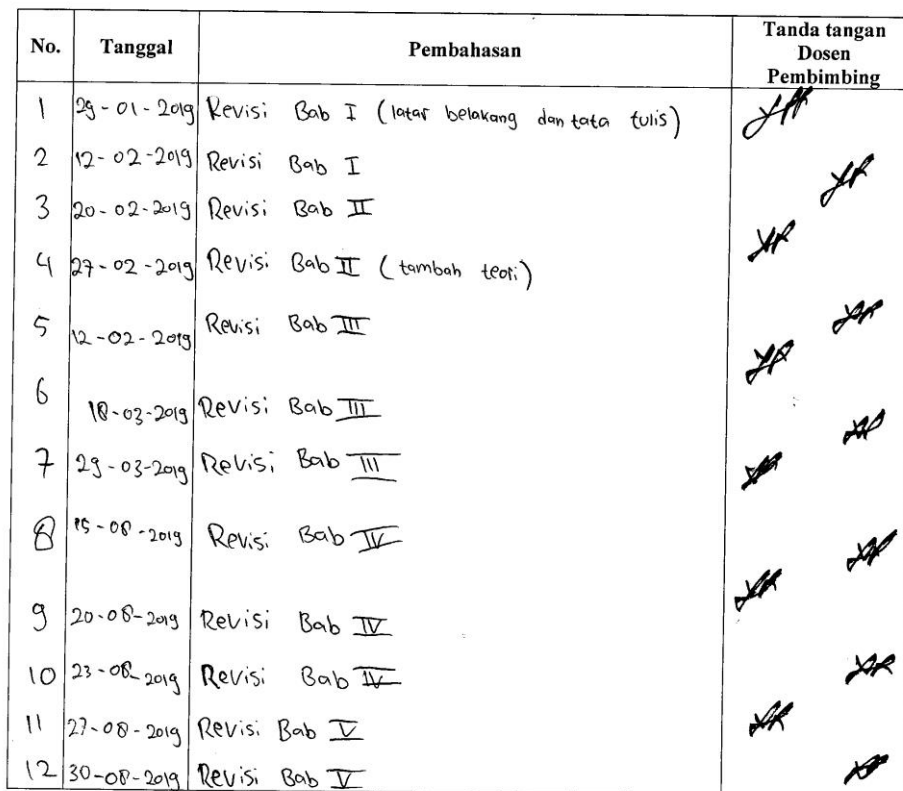 No. Tanggal Pembahasan Tanda tangan
Dosen
Pembimbing
1 29-01-2019 Revisi Bab I (latar belakang dan tata tulis)
2 12-02-2019 Revisi Bab I
3 20-02-2019 Revisi Bab II
4 27-02-2019 Revisi Bab II (tambah teori)
5 12-02-2019 Revisi Bab III
6 18-03-2019 Revisi Bab III
7 29-03-2019 Revisi Bab III
8 15-08-2019 Revisi Bab IV
9 20-08-2019 Revisi Bab IV
10 23-08-2019 Revisi Bab IV
11 27-08-2019 Revisi Bab V
12 30-08-2019 Revisi Bab V